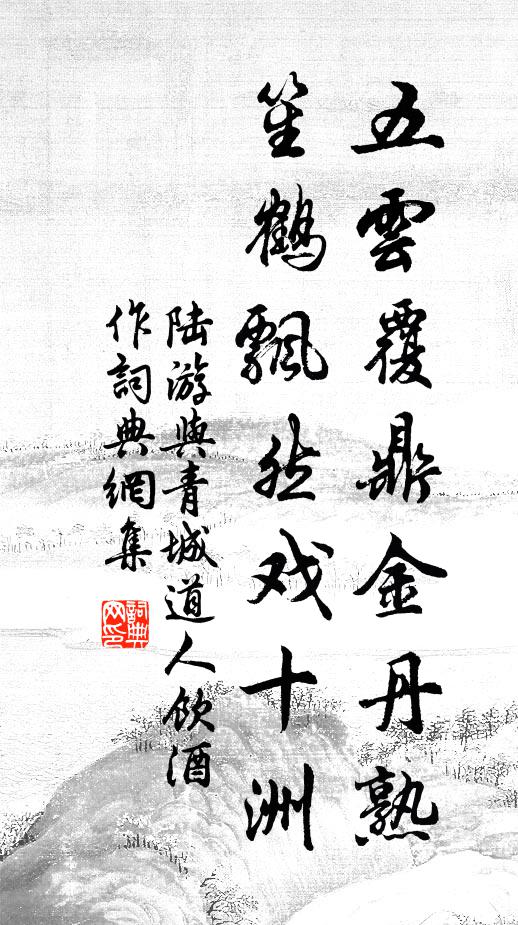 五雲覆鼎金丹熟
笙鶴飄然戏十洲
陆游與青城道人飲酒
作詞典網集
詞典
网印